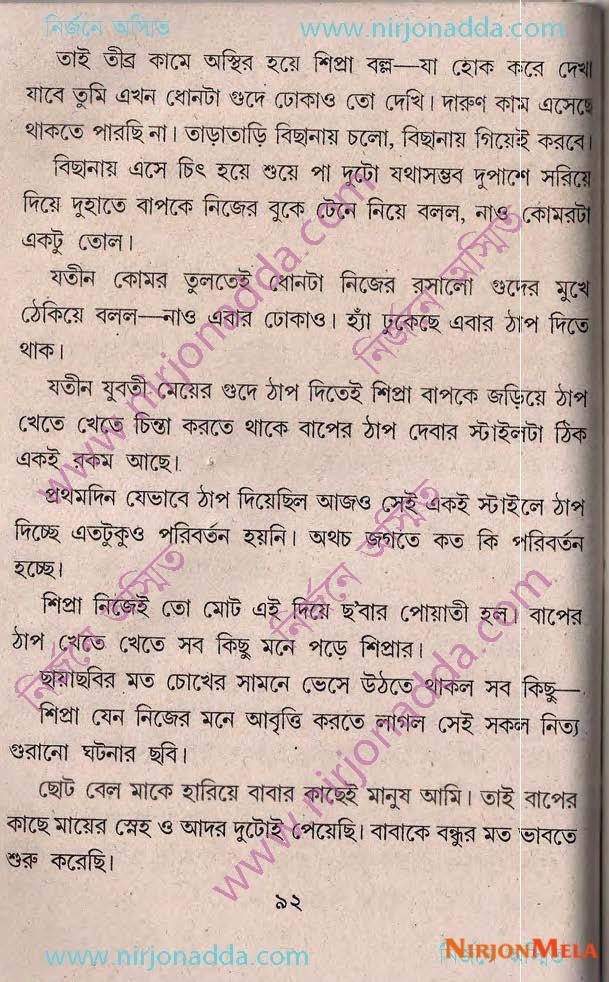 নির্জনে অস্মিত www.nirjonadda.com
তাই তীব্র কামে অস্থির হয়ে শিপ্রা বল্ল—যা হোক করে দেখা
যাবে তুমি এখন ধোনটা গুদে ঢোকাও তো দেখি। দারুণ কাম এসেছে
থাকতে পারছি না। তাড়াতাড়ি বিছানায় চলো, বিছানায় গিয়েই করবে।
বিছানায় এসে চিৎ হয়ে শুয়ে পা দুটো যথাসম্ভব দুপাশে সরিয়ে
দিয়ে দুহাতে বাপকে নিজের বুকে টেনে নিয়ে বলল, নাও কোমরটা
একটু তোল।
যতীন কোমর তুলতেই ধোনটা নিজের রসালো গুদের মুখে
ঠেকিয়ে বলল—নাও এবার ঢোকাও। হ্যাঁ ঢুকেছে এবার ঠাপ দিতে
থাক।
যতীন যুবতী মেয়ের গুদে ঠাপ দিতেই শিপ্রা বাপকে জড়িয়ে ঠাপ
খেতে খেতে চিন্তা করতে থাকে বাপের ঠাপ দেবার স্টাইলটা ঠিক
একই রকম আছে।
প্রথমদিন যেভাবে ঠাপ দিয়েছিল আজও সেই একই স্টাইলে ঠাপ
দিচ্ছে এতটুকুও পরিবর্তন হয়নি। অথচ জগতে কত কি পরিবর্তন
হচ্ছে।
শিপ্রা নিজেই তো মোট এই দিয়ে ছ'বার পোয়াতী হল। বাপের
ঠাপ খেতে খেতে সব কিছু মনে পড়ে শিপ্রার।
ছায়াছবির মত চোখের সামনে ভেসে উঠতে থাকল সব কিছু—
শিপ্রা যেন নিজের মনে আবৃত্তি করতে লাগল সেই সকল নিত্য
গুরানো ঘটনার ছবি।
ছোট বেল মাকে হারিয়ে বাবার কাছেই মানুষ আমি। তাই বাপের
কাছে মায়ের স্নেহ ও আদর দুটোই পেয়েছি। বাবাকে বন্ধুর মত ভাবতে
শুরু করেছি।
৯২
www.nirjonadda.com
নির্জনে অস্মিত
www.nirjonadda.com
নির্জনে অস্মিত
নির্জনে অস্মিত
www.nirjonadda.com
www.nirjonadda.com নির্জনে অস্মিত
NIRJONMELA